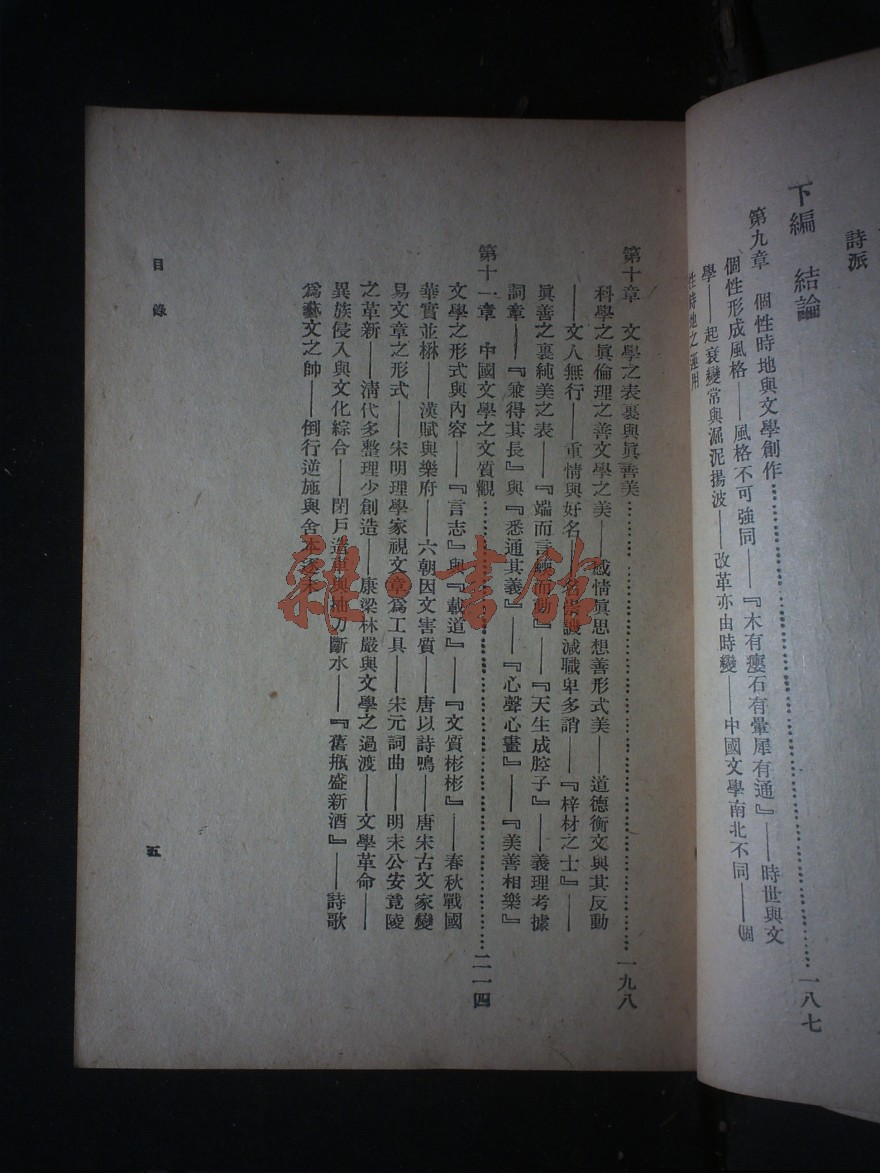 詩派
下編　結論
第九章　個性時地與文學創作……一八七
個性形成風格——風格不可強同——『木有癭石有暈犀有通』——時世與文
學——起衰變常與淈泥揚波——改革亦由時變——中國文學南北不同——個
性時地之運用
第十章　文學之表裏與眞善美……一九八
科學之眞倫理之善文學之美——感情眞思想善形式美——道德衡文與其反動
——文人無行——重情與好名——名崇譏減職卑多誚——『梓材之士』——
眞善之裏純美之表——『端而言蝡而動』——『天生成腔子』——義理考據
詞章——『兼得其長』與『悉通其義』——『心聲心畫』——『美善相樂』
第十一章　中國文學之文質觀……二一四
文學之形式與內容——『言志』與『載道』——『文質彬彬』——春秋戰國
華實並楙——漢賦與樂府——六朝因文害質——唐以詩鳴——唐宋古文家變
易文章之形式——宋明理學家視文章爲工具——宋元詞曲——明末公安竟陵
之革新——清代多整理少創造——康梁林嚴與文學之過渡——文學革命——
異族侵入與文化綜合——閉戶造車與抽刀斷水——『舊瓶盛新酒』——詩歌
爲藝文之帥——倒行逆施與舍本逐末
目錄
五
雜·書館